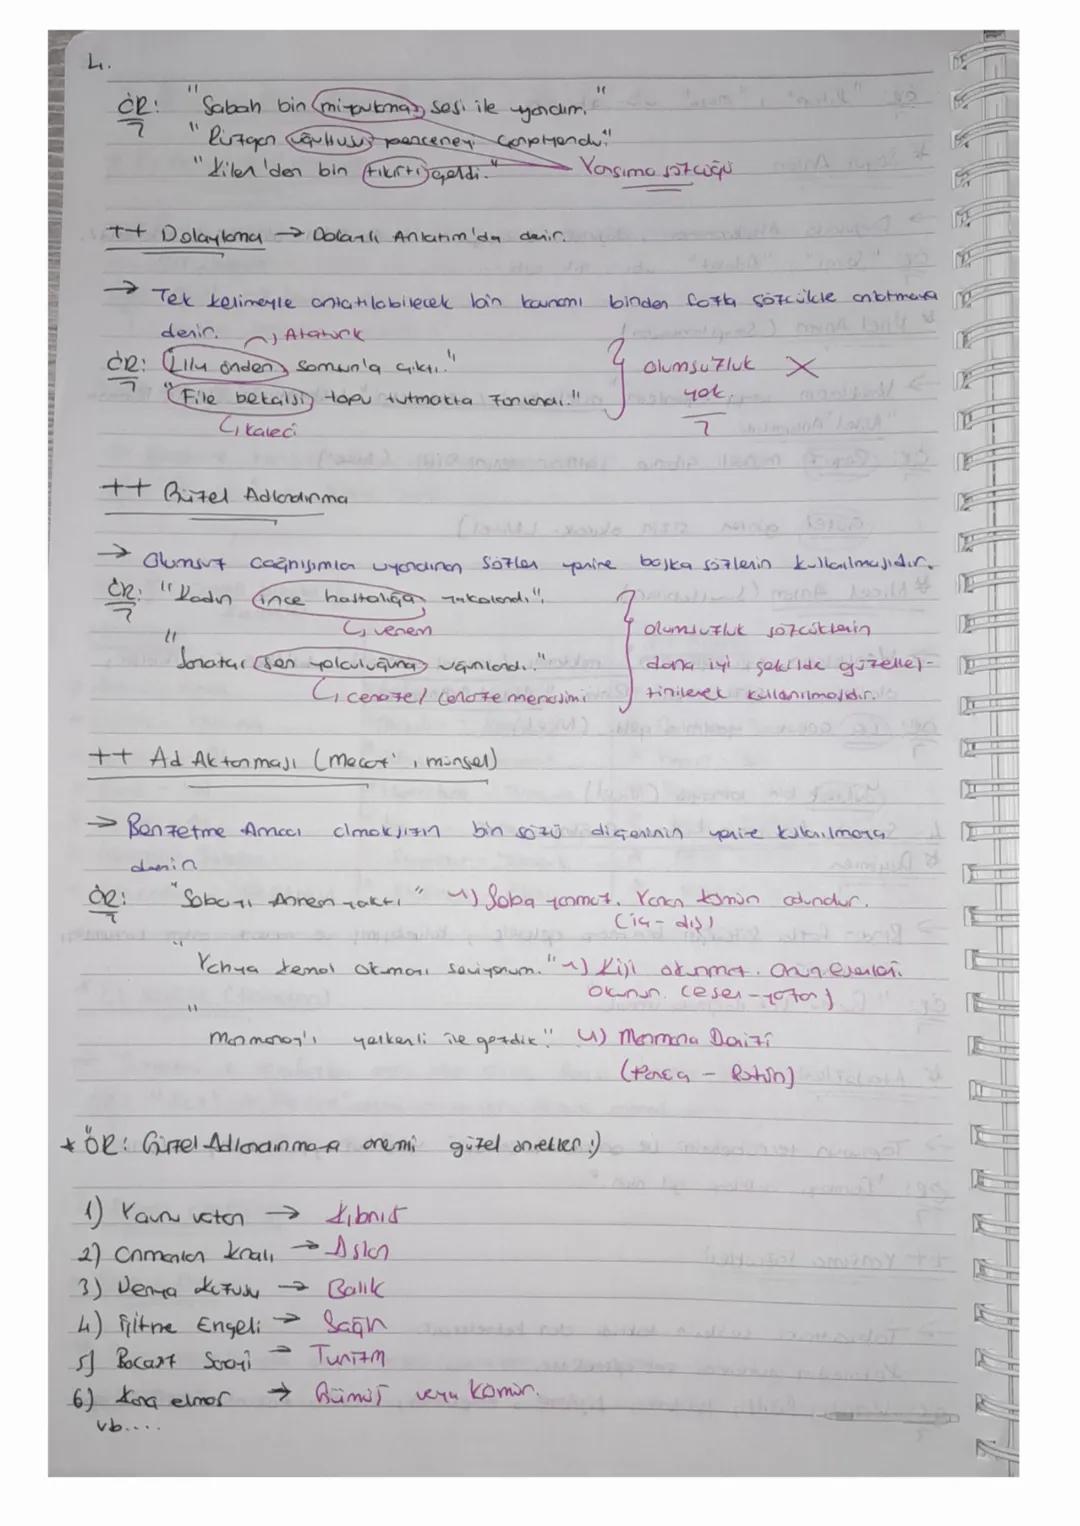 4.
ÖR: "Sabah bir mırıldanma sesi ile uyandım."
"Rüzgar uğultusu pencereyi çarpıyordu."
"Kiler'den bir tıkırtı geldi." Yansıma sözcüğü
++ Dolaylama → Dolaylı Anlatım'da denir.
→ Tek kelimeyle anlatılabilecek bir kavramı birden fazla sözcükle anlatmaya
denir. Atatürk
ÖR: "Ulu önder Samsun'a çıktı." olumsuzluk X
"File bekçisi topu tutmakta zorlandı." yok.
kaleci
++ Güzel Adlandırma
→ Olumsuz çağrışımlar uyandıran sözler yerine başka sözlerin kullanılmasıdır.
ÖR: "Kadın ince hastalığa yakalandı".
verem olumsuzluk sözcüklerin
"Sanatçı son yolculuğuna uğurlandı." daha iyi şekilde güzelleş-
cenaze/ cenaze merasimi tirilerek kullanılmasıdır.
++ Ad Aktarması (Mecaz'ı mürsel)
→ Benzetme Amacı olmaksızın bir sözü diğerinin yerine kullanılmaya
denir
ÖR: "Sobayı Annem yaktı" Soba yanmaz. Yanan kömür odundur.
(iç - dış)
"Yahya Kemal okumayı seviyorum." Kişi okunmaz. Onun eserleri
okunur. (eser-yazar)
"Marmaray'ı yelkenli ile gezdik." Marmara Denizi
(Parça - Bütün)
* ÖR: Güzel Adlandırmaya önemi güzel örnekler :)
1) Yavru vatan → Kıbrıs
2) Ormanlar kralı → Aslan
3) Derya kuzusu → Balık
4) İşitme Engeli → Sağır
5) Bacasız Sanayi → Turizm
6) Kara elmas → Gümüş veya Kömür.
vb....